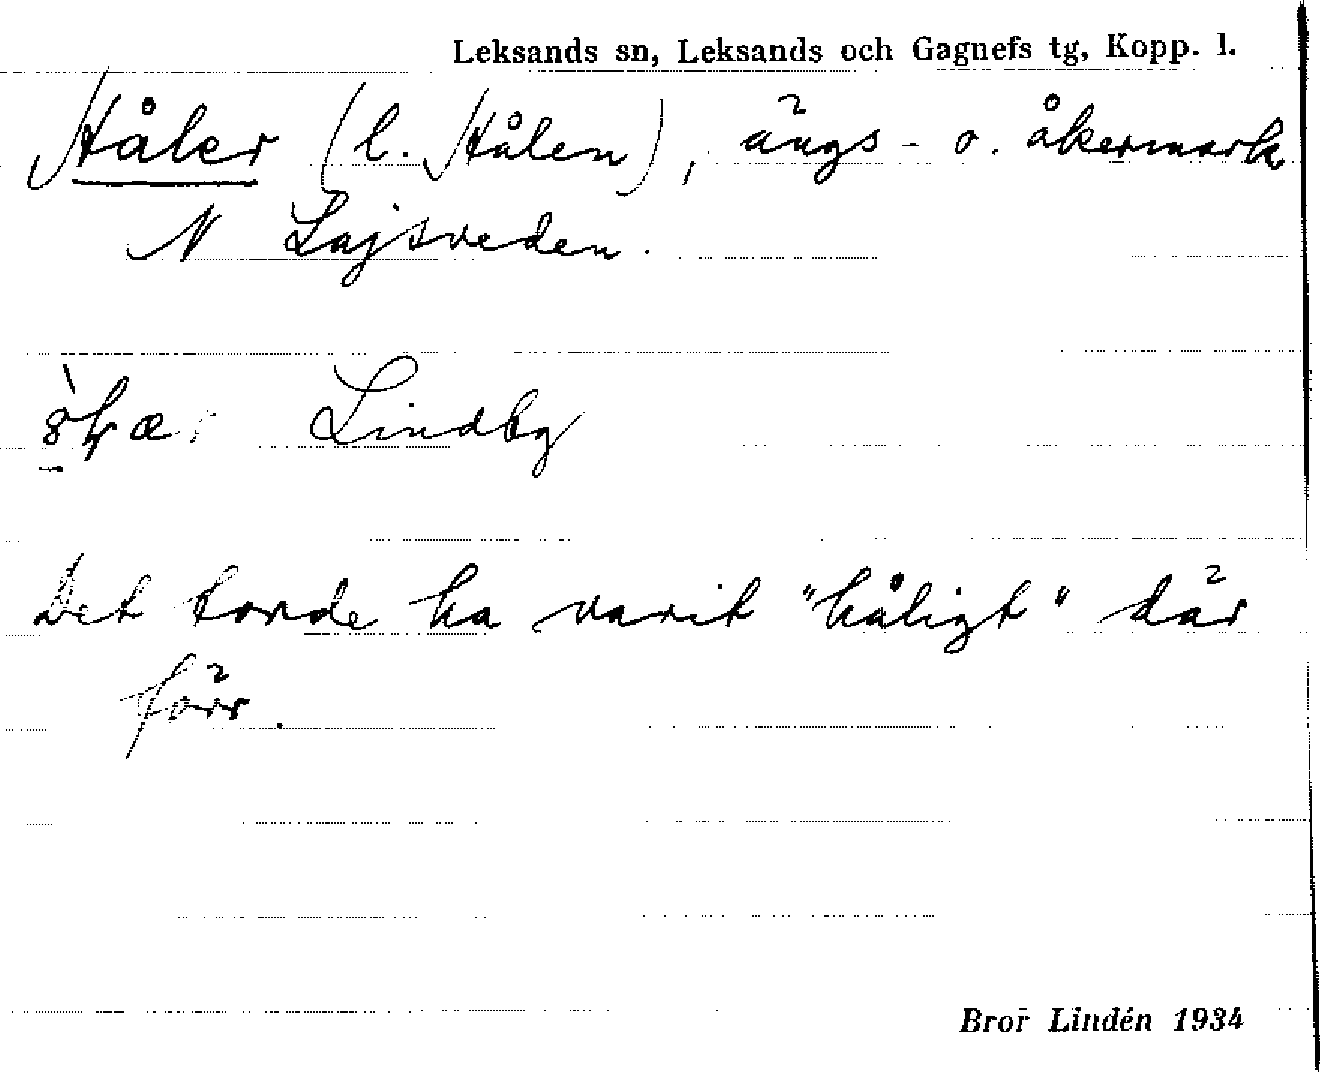 Leksands sn, Leksands och Gagnefs tg, Kopp. l.
Håler (l. Hålen), ängs- o. åkermark
N Lajsveden.
Lindby
Det torde ha varit "håligt" där
förr.
Bror Lindén 1934